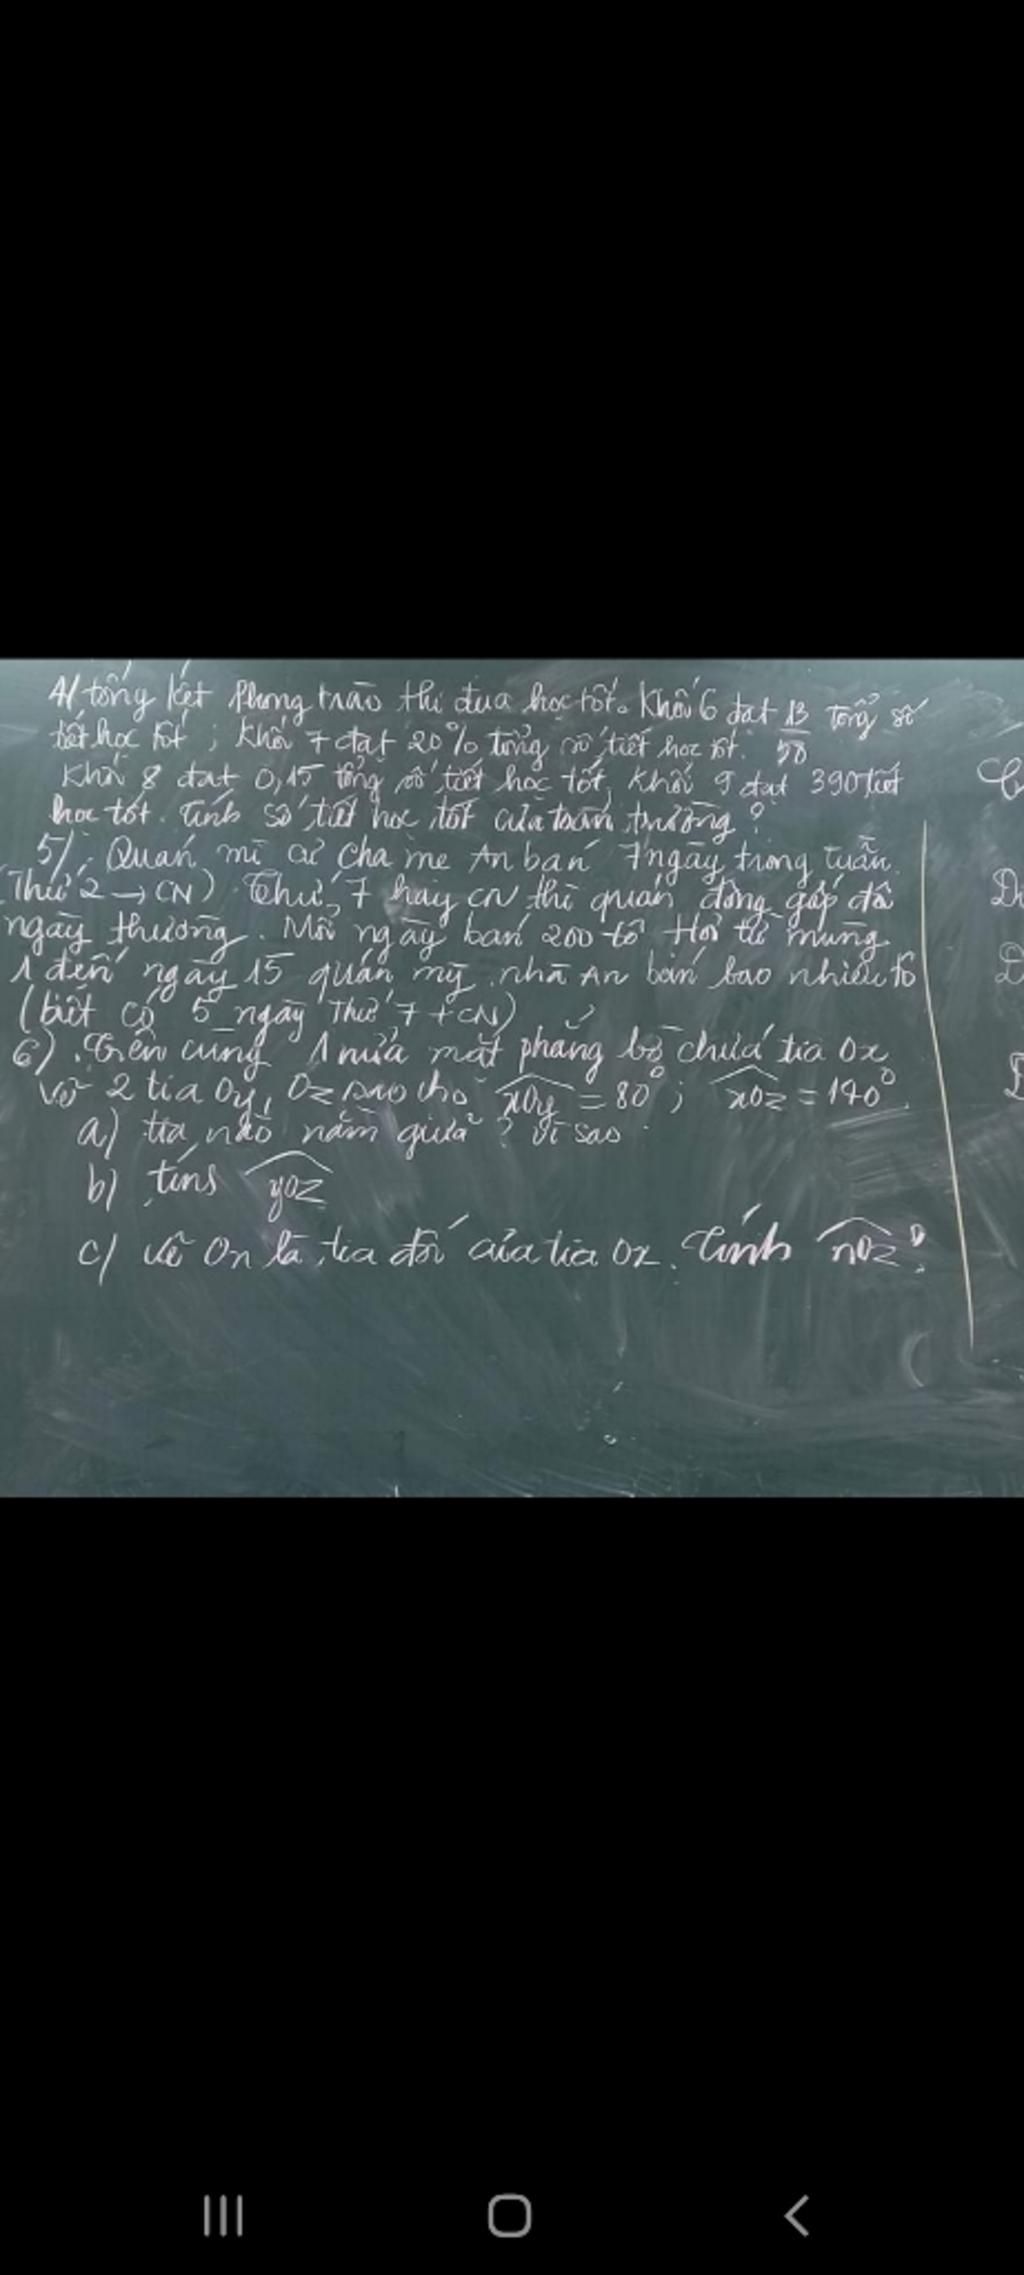 4/ tổng kết Phong trào thi đua học tốt. Khối 6 đạt 13/50 tổng số
tiết học tốt ; Khối 7 đạt 20% tổng số tiết học tốt.
Khối 8 đạt 0,15 tổng số tiết học tốt, Khối 9 đạt 390 tiết
học tốt. Tính số tiết học tốt của toàn trường ?
5/. Quán mì của cha mẹ An bán 7 ngày trong tuần
(Thứ 2 → CN) Thứ 7 hay CN thì quán đông gấp đôi
ngày thường. Mỗi ngày bán 200 tô Hỏi từ mùng
1 đến ngày 15 quán mỳ nhà An bán bao nhiêu tô
(biết có 5 ngày Thứ 7 + CN)
6). Trên cùng 1 nửa mặt phẳng bờ chứa tia Ox
Vẽ 2 tia Oy, Oz sao cho xOy = 80° ; xOz = 140°.
a) tia nào nằm giữa ? Vì sao
b) tính yOz
c) vẽ On là tia đối của tia Ox. Tính nOz ?